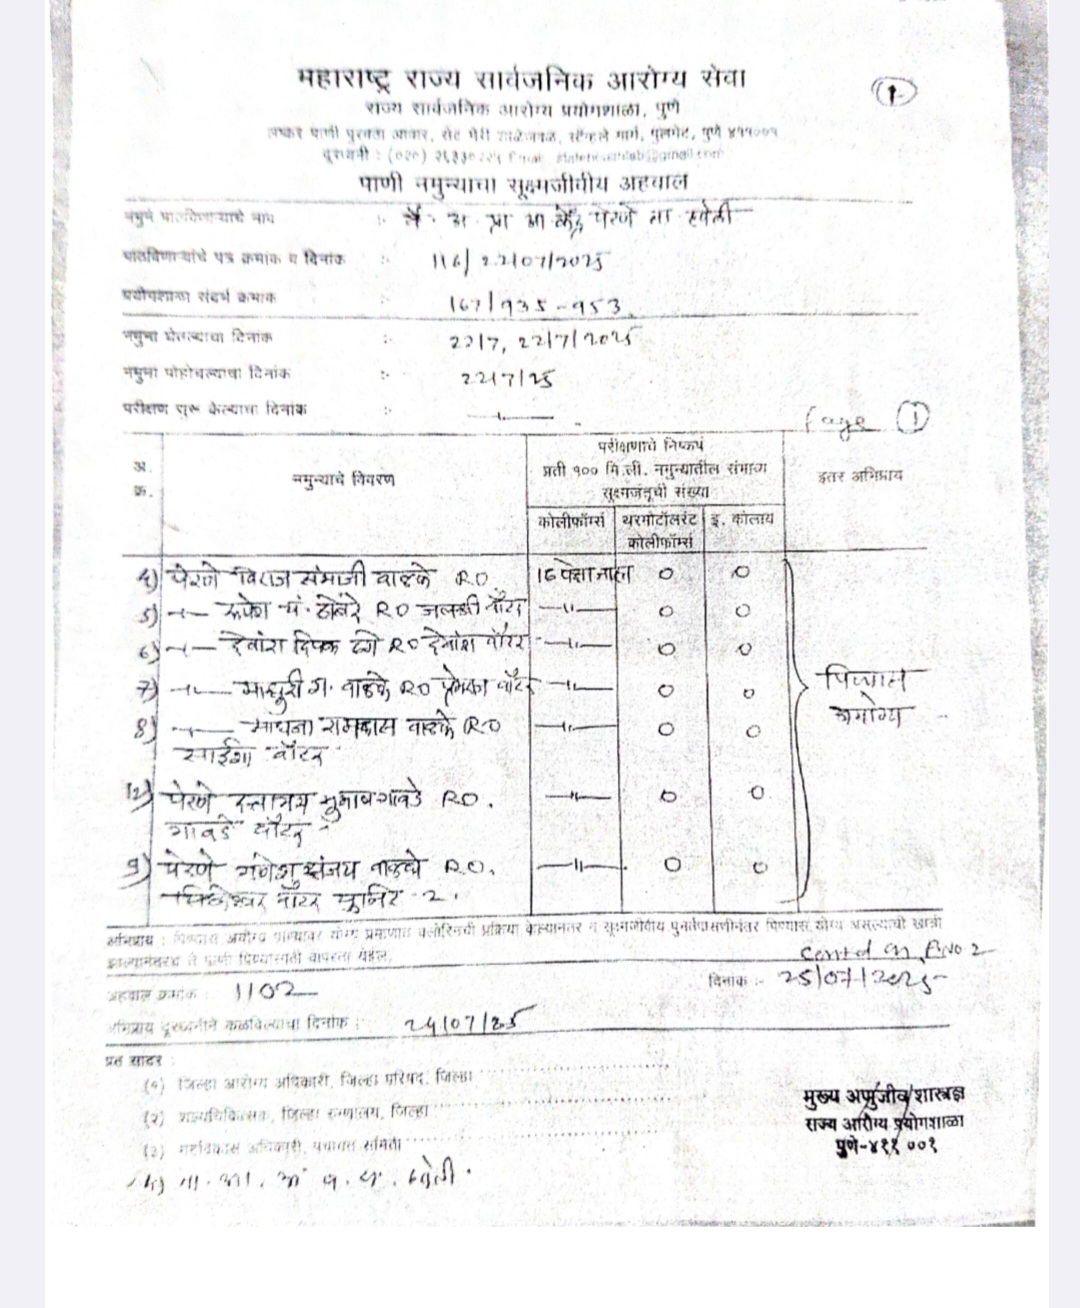 ①
महाराष्ट्र राज्य सार्वजनिक आरोग्य सेवा
राज्य सार्वजनिक आरोग्य प्रयोगशाळा, पुणे
लष्कर पाणी पुरवठा आवार, सेंट मेरी शाळेजवळ, मार्ग, पुलगेट, पुणे ४११००१
दूरध्वनी : (०२०) Email
पाणी नमुन्याचा सूक्ष्मजीवीय अहवाल
नमुने पाठविणाऱ्याचे नाव :- वै. अ. प्रा आ केंद्र पेरणे ता हवेली
पाठविणाऱ्यांचे पत्र क्रमांक व दिनांक :- 116/22/07/2025
प्रयोगशाळा संदर्भ क्रमांक 167/935-953
नमुना घेतल्याचा दिनांक :- 22/7/2025
नमुना पोहोचल्याचा दिनांक :- 22/7/25
परीक्षण सुरू केल्याचा दिनांक :- —"—
Page ①
अ. क्र.
नमुन्याचे विवरण
परीक्षणाचे निष्कर्ष
प्रती १०० मि.ली. नमुन्यातील संभाव्य
सूक्ष्मजंतूची संख्या
इतर अभिप्राय
कोलीफॉर्म्स थरमोटॉलरंट कोलीफॉर्म्स इ. कोलाय
4) पेरणे विराज संभाजी वाळके RO 16 पेक्षा जास्त 0 0
5) —"— रुपेश ढोबरे RO वॉटर —"— 0 0
6) —"— देवांश दिपक RO देवांश वॉटर —"— 0 0
7) —"— माधुरी ग. वाळके RO वॉटर —"— 0 0
8) —"— साधना रामदास वाळके RO —"— 0 0
साईशा वॉटर
पिण्यास
अयोग्य
12) पेरणे दत्तात्रय गावडे RO. —"— 0 0
गावडे वॉटर
9) पेरणे गणेश संजय वाळके RO. —"— 0 0
वॉटर युनिट -2.
अभिप्राय : पिण्यास अयोग्य पाण्यावर योग्य प्रमाणात क्लोरिनची प्रक्रिया केल्यानंतर व सूक्ष्मजीवीय पुनर्तपासणीनंतर पिण्यास योग्य असल्याची खात्री
झाल्यानंतरच ते पाणी पिण्यासाठी वापरता येईल.
Contd on P.No 2
अहवाल क्रमांक : 1102 दिनांक :- 25/07/2025
अभिप्राय दूरध्वनीने कळविल्याचा दिनांक :- 24/07/25
प्रत सादर :
(१) जिल्हा आरोग्य अधिकारी, जिल्हा परिषद, जिल्हा
(२) शल्यचिकित्सक, जिल्हा रुग्णालय, जिल्हा
(३) गटविकास अधिकारी, पंचायत समिती
(४) ता. आ. अ हवेली.
मुख्य अणुजीव शास्त्रज्ञ
राज्य आरोग्य प्रयोगशाळा
पुणे-४११ ००१